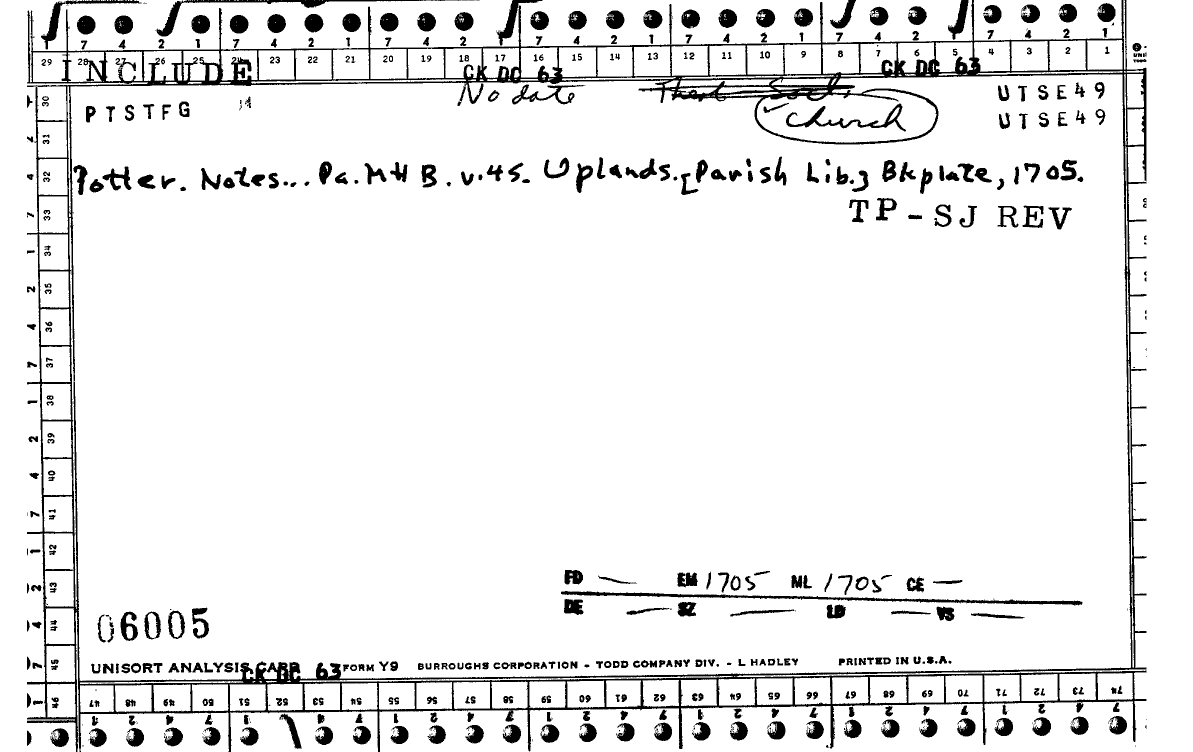 7 4 2 1 7 4 2 1 7 4 2 1 7 4 2 1 7 4 2 1 7 4 2 1 7 4 2 1
29 28 27 26 25 24 23 22 21 20 19 18 17 16 15 14 13 12 11 10 9 8 7 6 5 4 3 2 1
INCLUDE CK DC 63 CK DC 63
No date
PTSTFG 14 church UTSE49
UTSE49
Potter. Notes... Pa.MHB. v.45. Uplands.[Parish Lib.] Bkplate, 1705.
TP-SJ REV
30
31
32
33
34
35
36
37
38
39
40
41
42
43
44
45
46
FD — EM 1705 NL 1705 CE —
DE — SZ — LD — VS —
06005
UNISORT ANALYSIS CARD FORM Y9 BURROUGHS CORPORATION - TODD COMPANY DIV. - L HADLEY PRINTED IN U.S.A.
CK DC 63
47 48 49 50 51 52 53 54 55 56 57 58 59 60 61 62 63 64 65 66 67 68 69 70 71 72 73 74